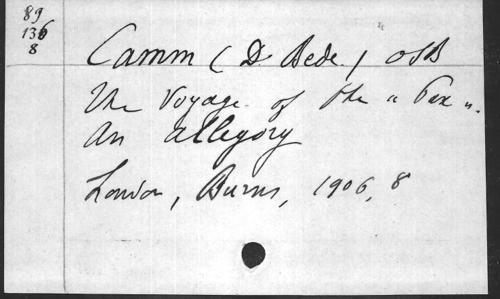 89
136
8
Camm (D Bede.) OSB
The Voyage of the "Pax".
An allegory
London, Burns, 1906, 8